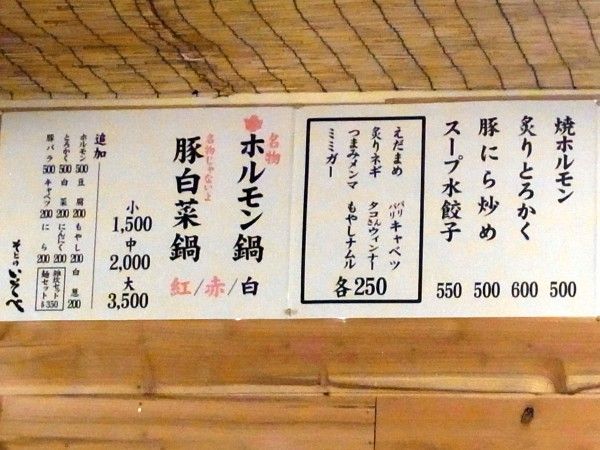 焼ホルモン 500
炙りとろかく 600
豚にら炒め 500
スープ水餃子 550
えだまめ
炙りネギ
つまみメンマ
ミミガー
パリパリキャベツ
タコさんウィンナー
もやしナムル
各250
名物
ホルモン鍋
名物じゃないよ
豚白菜鍋
白/赤/紅
小 1,500
中 2,000
大 3,500
追加
ホルモン 500 豆腐 200 もやし 200 白葱 200
とろかく 500 白菜 200 にんにく 200
豚バラ 500 キャベツ 200 にら 200
雑炊セット
麺セット
各350